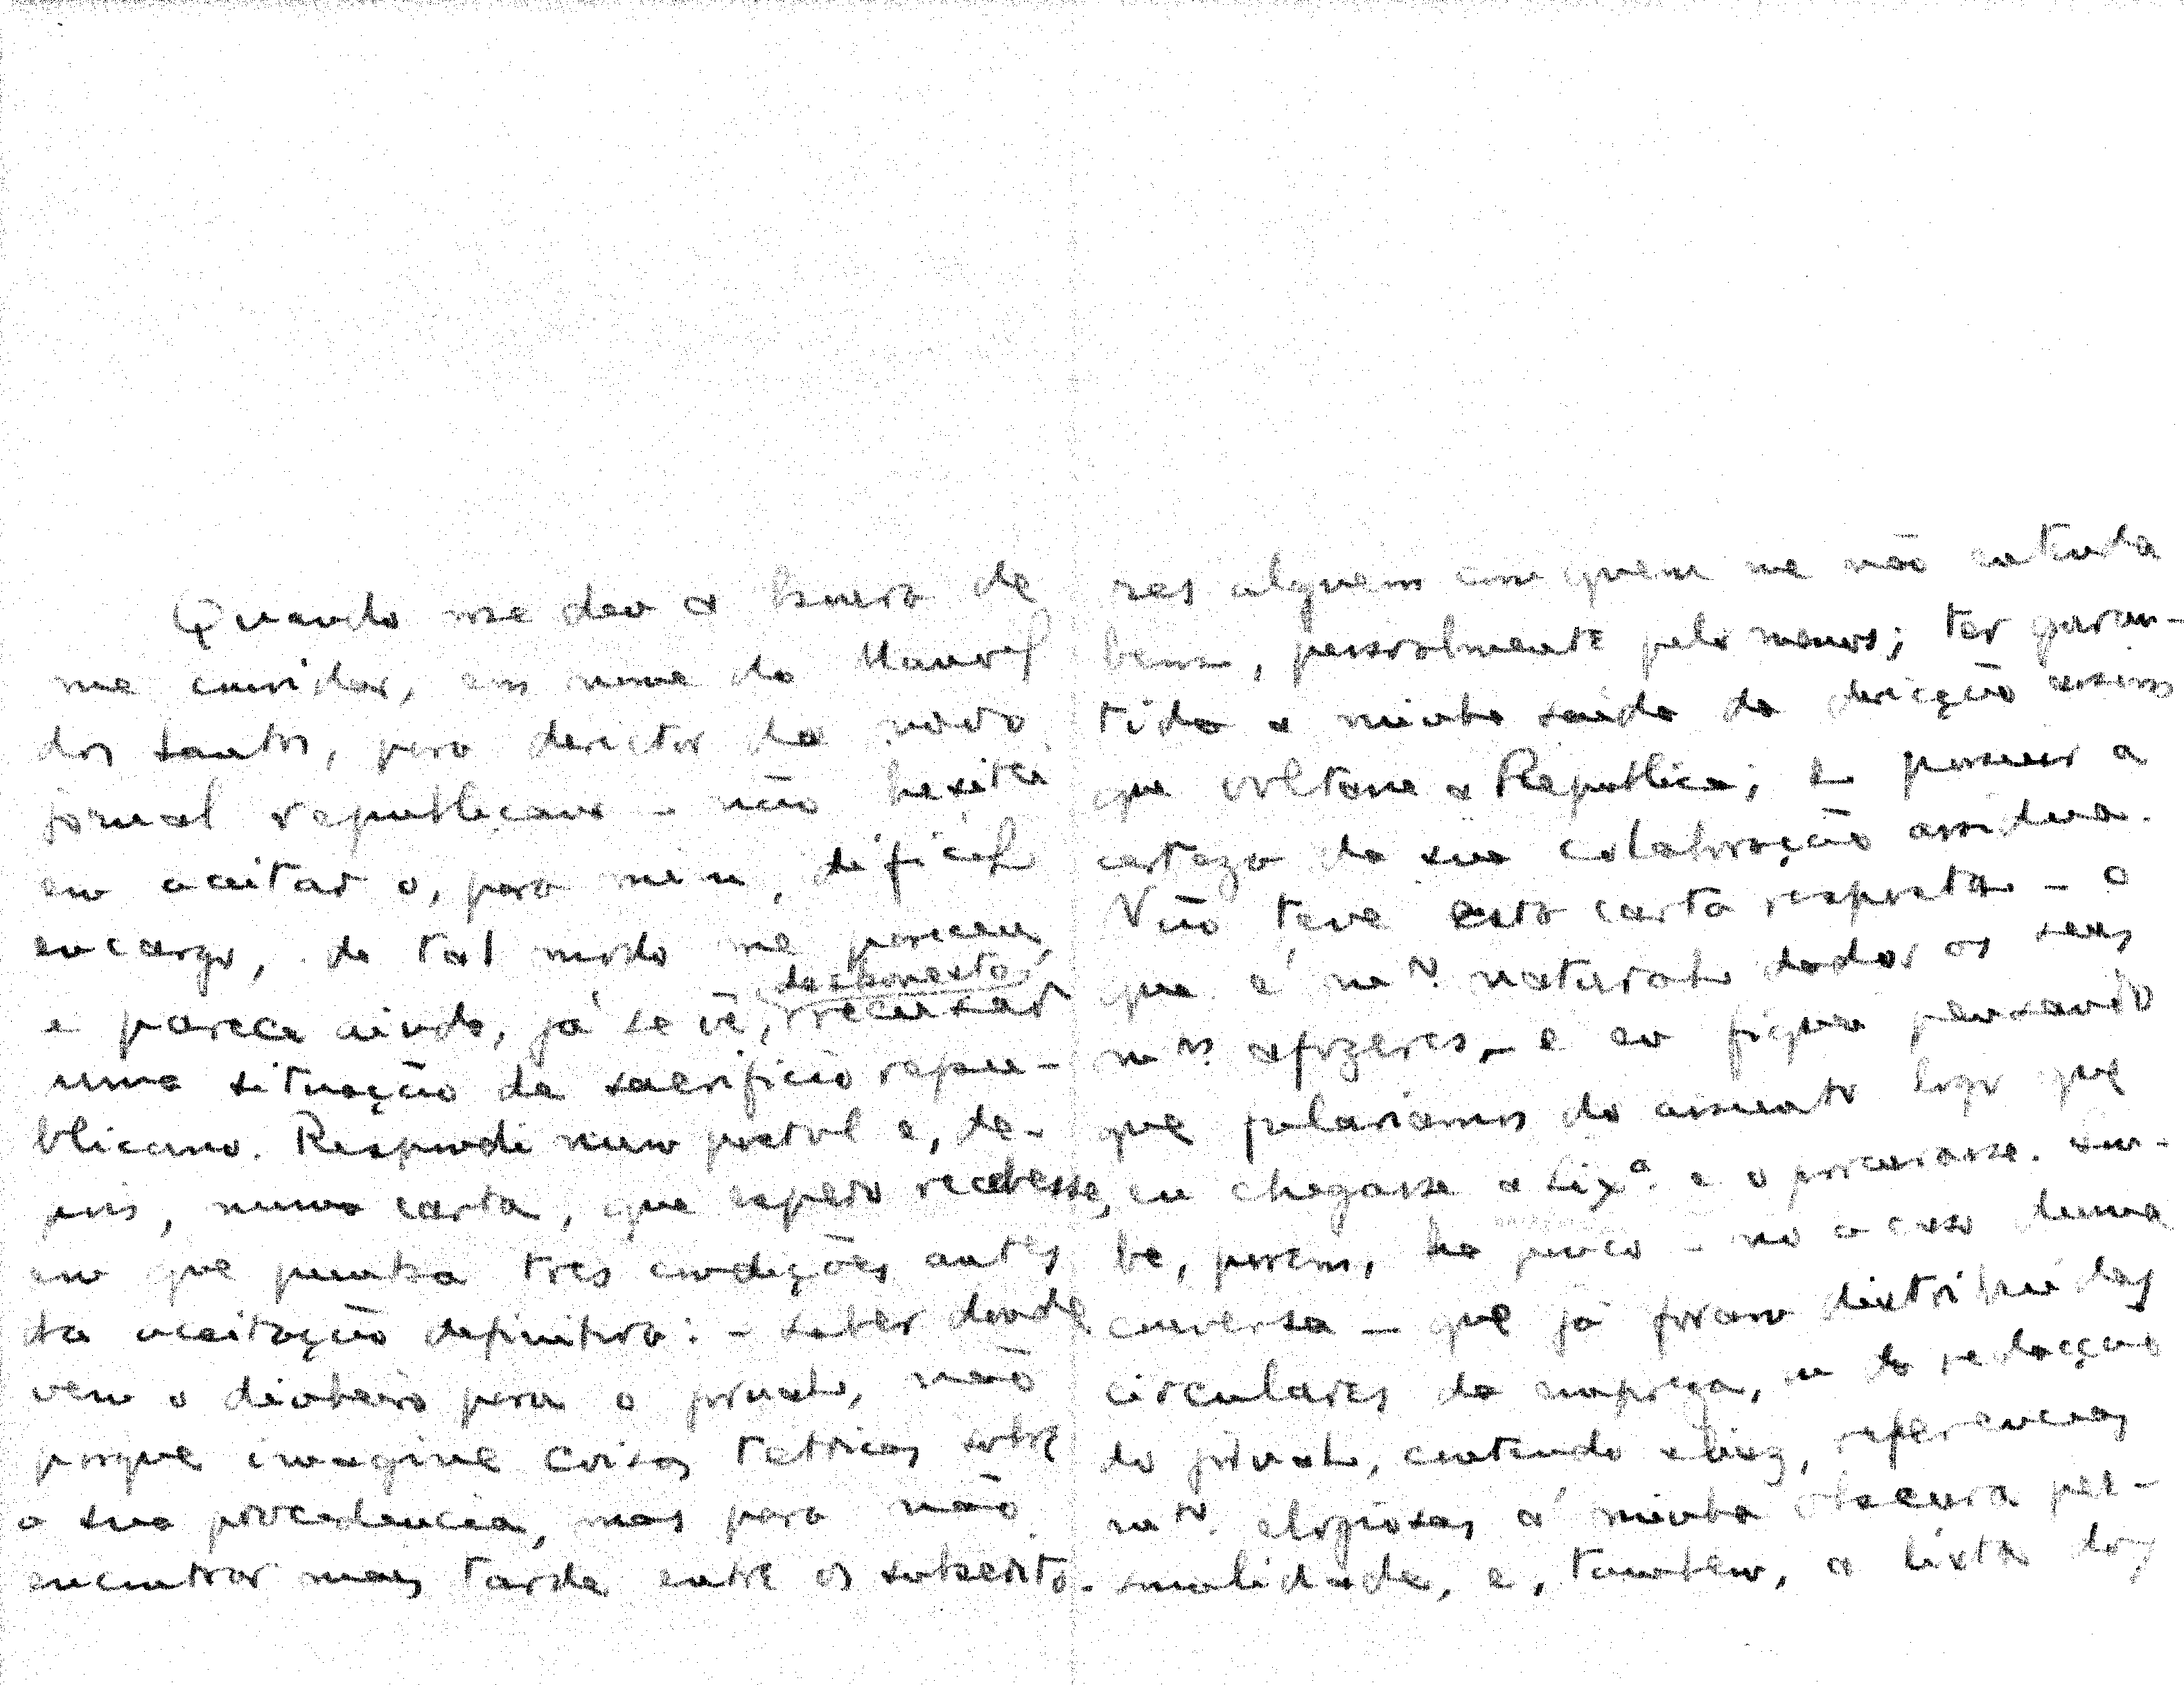 Quando me deu a honra de
me convidar, em nome do Manoel
dos Santos, para derictor do novo
jornal republicano - não hesitei
em aceitar o, para mim, dificil
encargo, de tal modo me pareceu,
e parece ainda, já se vê, deshonesto recusar
uma situação de sacrificio repu-
blicano. Respondi num postal e, de-
pois, numa carta, que espero recebesse,
em que punha tres condições antes
da aceitação definitiva: - saber donde
vem o dinheiro para o jornal, não
porque imagine coisas tetricas sobre
a sua procedencia, mas para não
encontrar mais tarde entre os subscrito-
res alguem com quem me não entenda
bem, pessoalmente pelo menos; ter garan-
tida a minha saída da direcção assim
que voltasse a Republica; e possuir a
certeza da sua colaboração assidua.
Não teve esta carta resposta - o
que é mto. natural dados os seus
mtos. afazeres, - e eu fiquei pensando
que falariamos do assunto logo que
eu chegasse a Lixa. e o procurasse. Sou-
be, porem, ha pouco - no acaso duma
conversa - que já foram distribuidas
circulares da empreza, ou da redacção
do jornal, contendo, aliaz, referencias
mto. elogiosas á minha obscura pes-
soalidade, e, tambem, a lista dos